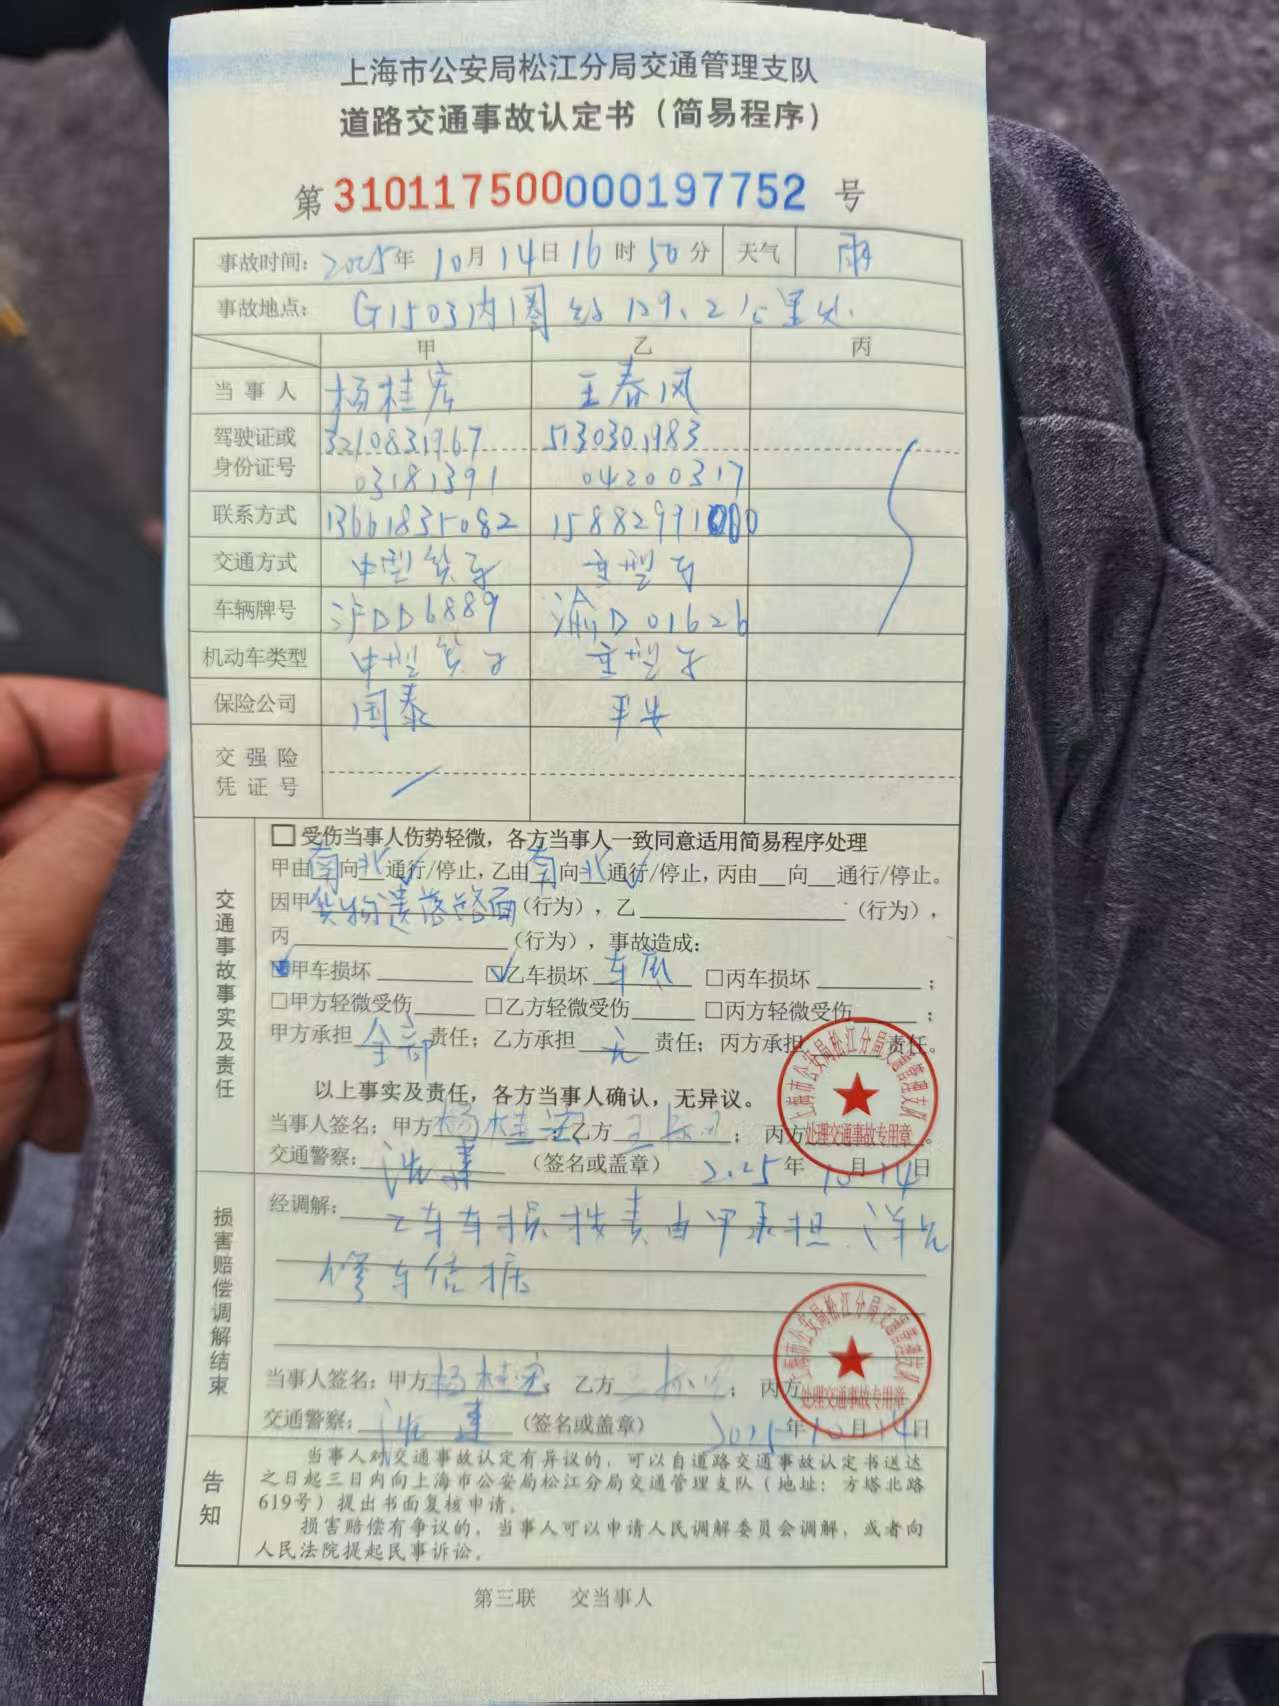 上海市公安局松江分局交通管理支队
道路交通事故认定书（简易程序）
第 310117500000197752 号
事故时间: 2025年 10月 14日 16时 50分 天气 雨
事故地点: G1503内圈 129.2公里处.
甲 乙 丙
当事人 杨桂宏 王春风
驾驶证或 3210831967 5130301983
身份证号 03181391 04200317
联系方式 13661835082 15882991000
交通方式 中型货车 重型车
车辆牌号 沪DD6889 渝D01626
机动车类型 中型货车 重型车
保险公司 国泰 平安
交强险
凭证号
交通事故事实及责任
□ 受伤当事人伤势轻微，各方当事人一致同意适用简易程序处理
甲由南向北通行/停止, 乙由南向北通行/停止, 丙由__向__通行/停止。
因甲货物遗落路面（行为），乙（行为），
丙（行为），事故造成:
☑甲车损坏 ☑乙车损坏 车底 □丙车损坏 ；
□甲方轻微受伤 □乙方轻微受伤 □丙方轻微受伤 ；
甲方承担 全部 责任; 乙方承担 无 责任; 丙方承担 责任。
以上事实及责任，各方当事人确认，无异议。
当事人签名: 甲方 杨桂宏 乙方 ； 丙方 。
交通警察: （签名或盖章） 2025年10月14日
上海市公安局松江分局交通管理支队
处理交通事故专用章
损害赔偿调解结束
经调解: 乙车车损按责由甲承担. 详见
修车信据
当事人签名: 甲方 杨桂宏; 乙方 ； 丙方
交通警察: （签名或盖章） 2025年10月14日
上海市公安局松江分局交通管理支队
处理交通事故专用章
告知
当事人对交通事故认定有异议的，可以自道路交通事故认定书送达
之日起三日内向上海市公安局松江分局交通管理支队（地址: 方塔北路
619号）提出书面复核申请。
损害赔偿有争议的，当事人可以申请人民调解委员会调解，或者向
人民法院提起民事诉讼。
第三联 交当事人